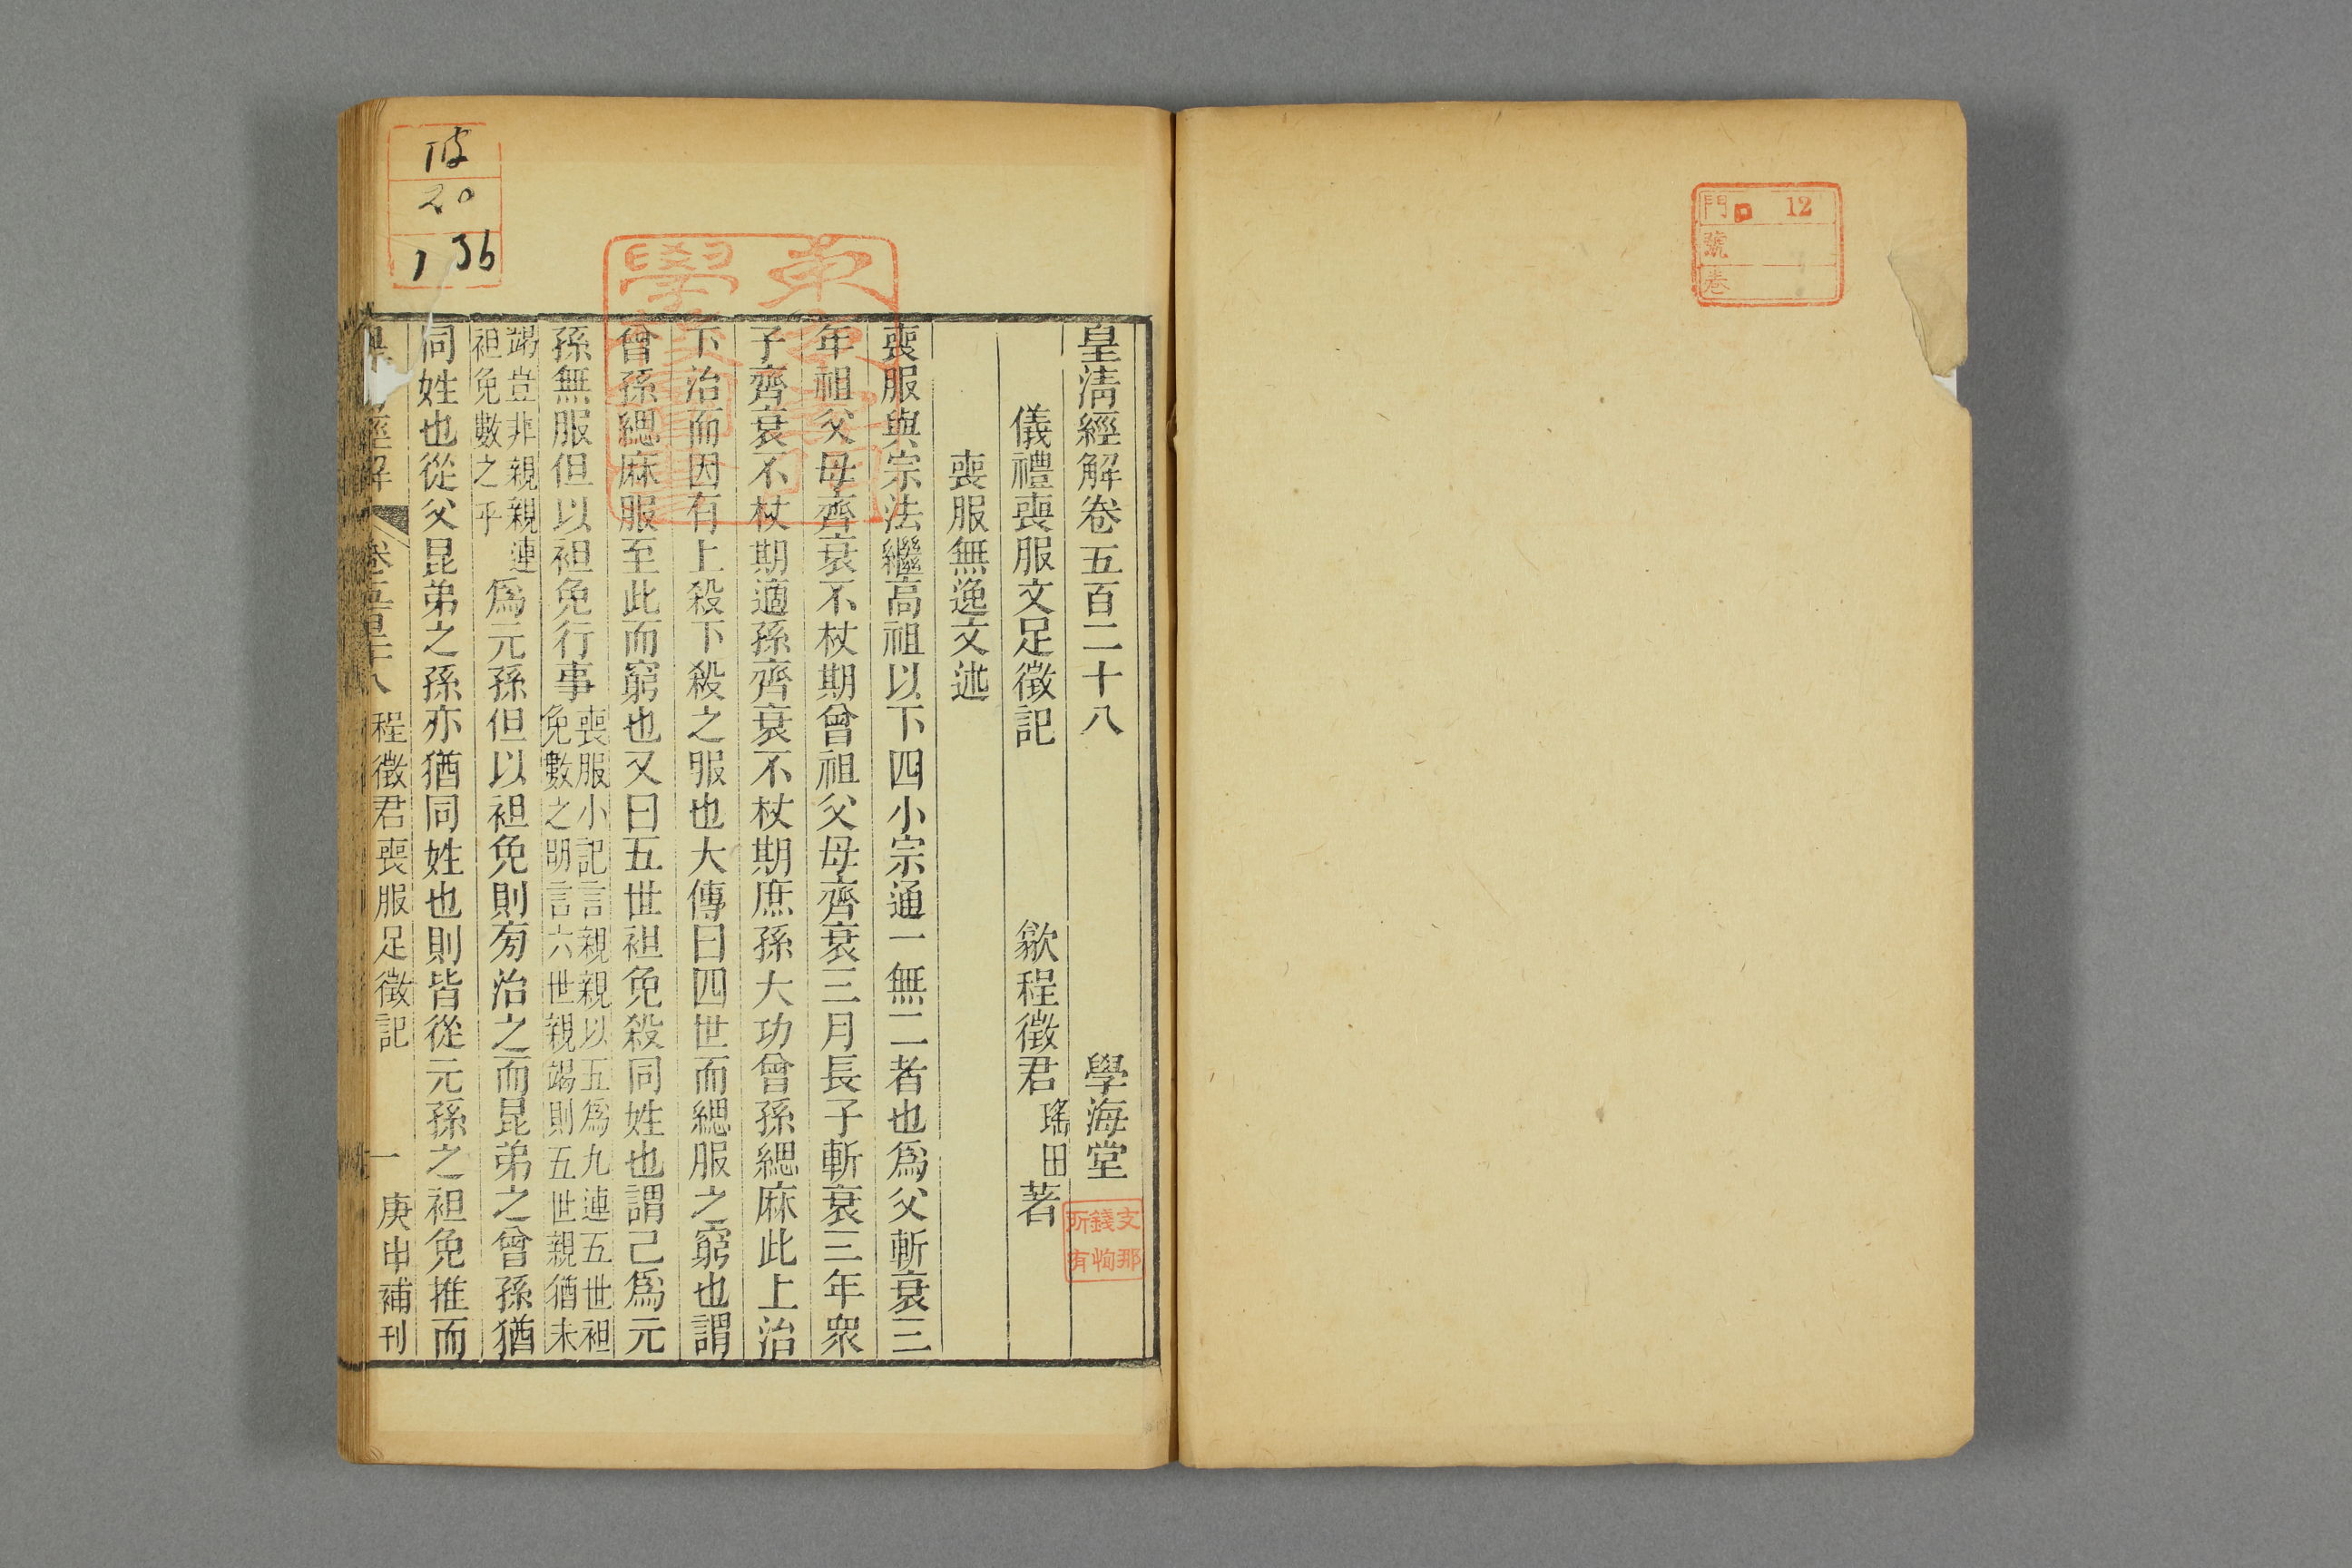 門 12
號
卷
皇清經解卷五百二十八 學海堂
儀禮喪服文足徵記 歙程徵君瑤田著
喪服無逸文述
喪服與宗法繼高祖以下四小宗通一無二者也爲父斬衰三
年祖父母齊衰不杖期曾祖父母齊衰三月長子斬衰三年衆
子齊衰不杖期適孫齊衰不杖期庶孫大功曾孫緦麻此上治
下治而因有上殺下殺之服也大傳曰四世而緦服之窮也謂
曾孫緦麻服至此而窮也又曰五世袒免殺同姓也謂己爲元
孫無服但以袒免行事喪服小記言親親以五爲九連五世袒
免數之明言六世親竭則五世親猶未
竭豈非親親連
袒免數之乎
爲元孫但以袒免則旁治之而昆弟之曾孫猶
同姓也從父昆弟之孫亦猶同姓也則皆從元孫之袒免推而
經解 卷五百二十八 程徵君喪服足徵記 一 庚申補刊
支那
錢恂
所有
20
1 36